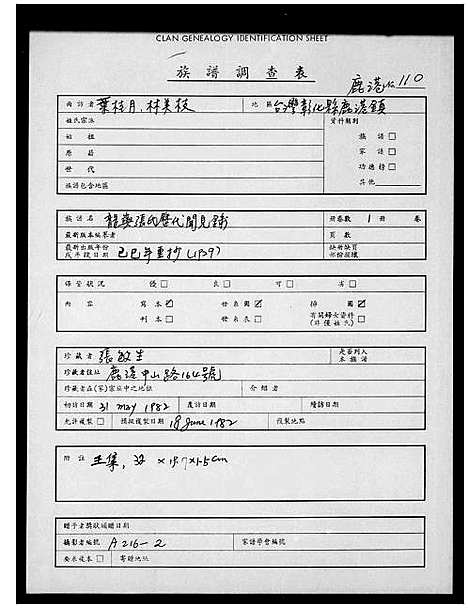 CLAN GENEALOGY IDENTIFICATION SHEET
族譜調查表
鹿港 No 110
面訪者 葉桂月、林美枝 地區 台灣彰化縣鹿港鎮
姓氏宗派 資料類別
始祖 族譜□
原籍 家譜□
世代 功德榜□
族譜包含地區 其他
族譜名 張氏歷代聞見 冊卷數 1 冊 卷
最新版本編纂者 頁數
最新出版年份或手錄日期 己巳年重抄 (1929) 缺冊缺頁部份損壞
保管狀況 優□ 良□ 可□ 劣□
內容 寫本☑ 世系圖☑ 插圖☑
刊本□ 世系表□ 有關婦女資料(非僅姓氏)□
珍藏者 張敏生 是否列入本族譜
珍藏者住址 鹿港中山路164號
珍藏者在(家)宗族中之地位 介紹者
初訪日期 31 may 1982 複訪日期 續訪日期
允許複製□ 預擬複製日期 18 June 1982 複製地點
附註 主集, x 19.7 x 1.5 cm
贈予者獎狀頒贈日期
攝影者編號 A 216-2 家譜學會編號
要求複本□ 寄贈地址